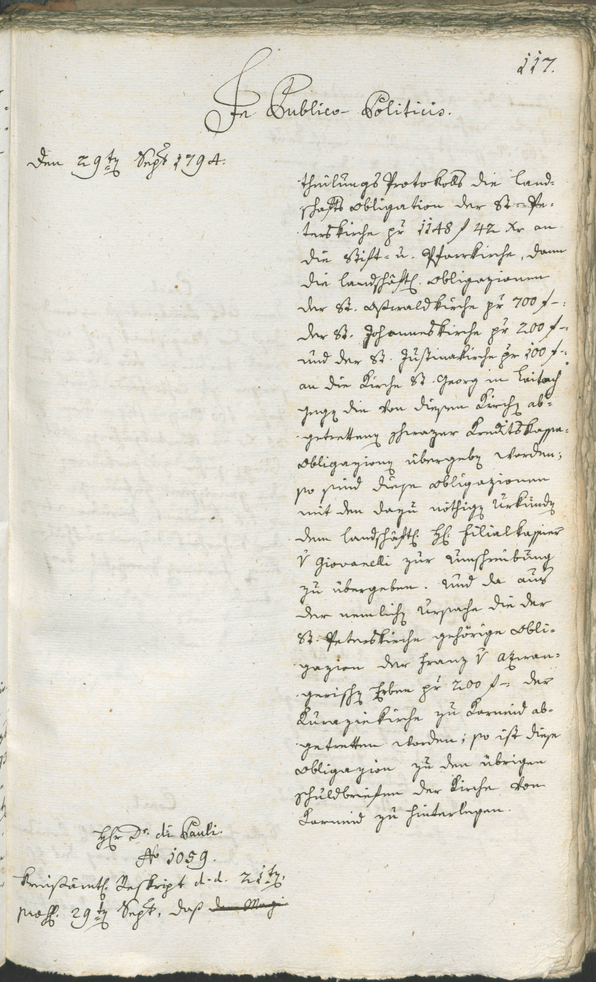 117.
In Publico-Politicis.
Den 29ten Sept 1794.
theilungs Protokolls die land-
schafts Obligation der St. Pe-
terskirche pr 1148 f 42 xr an
die Stift- u. Pfarrkirche, dann
die landschäftl. Obligazionen
der St. Oswaldkirche pr 700 f-:
der St. Johanneskirche pr 200 f-:
und der St. Justinakirche pr 100 f-:
an die Kirche St. Georg in
gegen die von diesen Kirchen ab-
getrettenen schwazer Kreditskassa-
Obligazionen übergeben worden;
so sind diese Obligazionen
mit den dazu nöthigen Urkunden
dem landschäftl. H. Filialkassier
v Giovanelli zur Umschreibung
zu übergeben. Und da aus
der nemlichen Ursache die der
St. Peterskirche gehörige Obli-
gazion der Franz v Azwan-
gerischen Erben pr 200 f-: der
Kuraziekirche zu Karneid ab-
getretten worden; so ist diese
Obligazion zu den übrigen
Schuldbriefen der Kirche von
Karneid zu hinterlegen.
Hr Dr. di Pauli.
No 1059.
Kreisämtl. Reskript d.d. 21ten
praes. 29ten Sept, daß der Magi